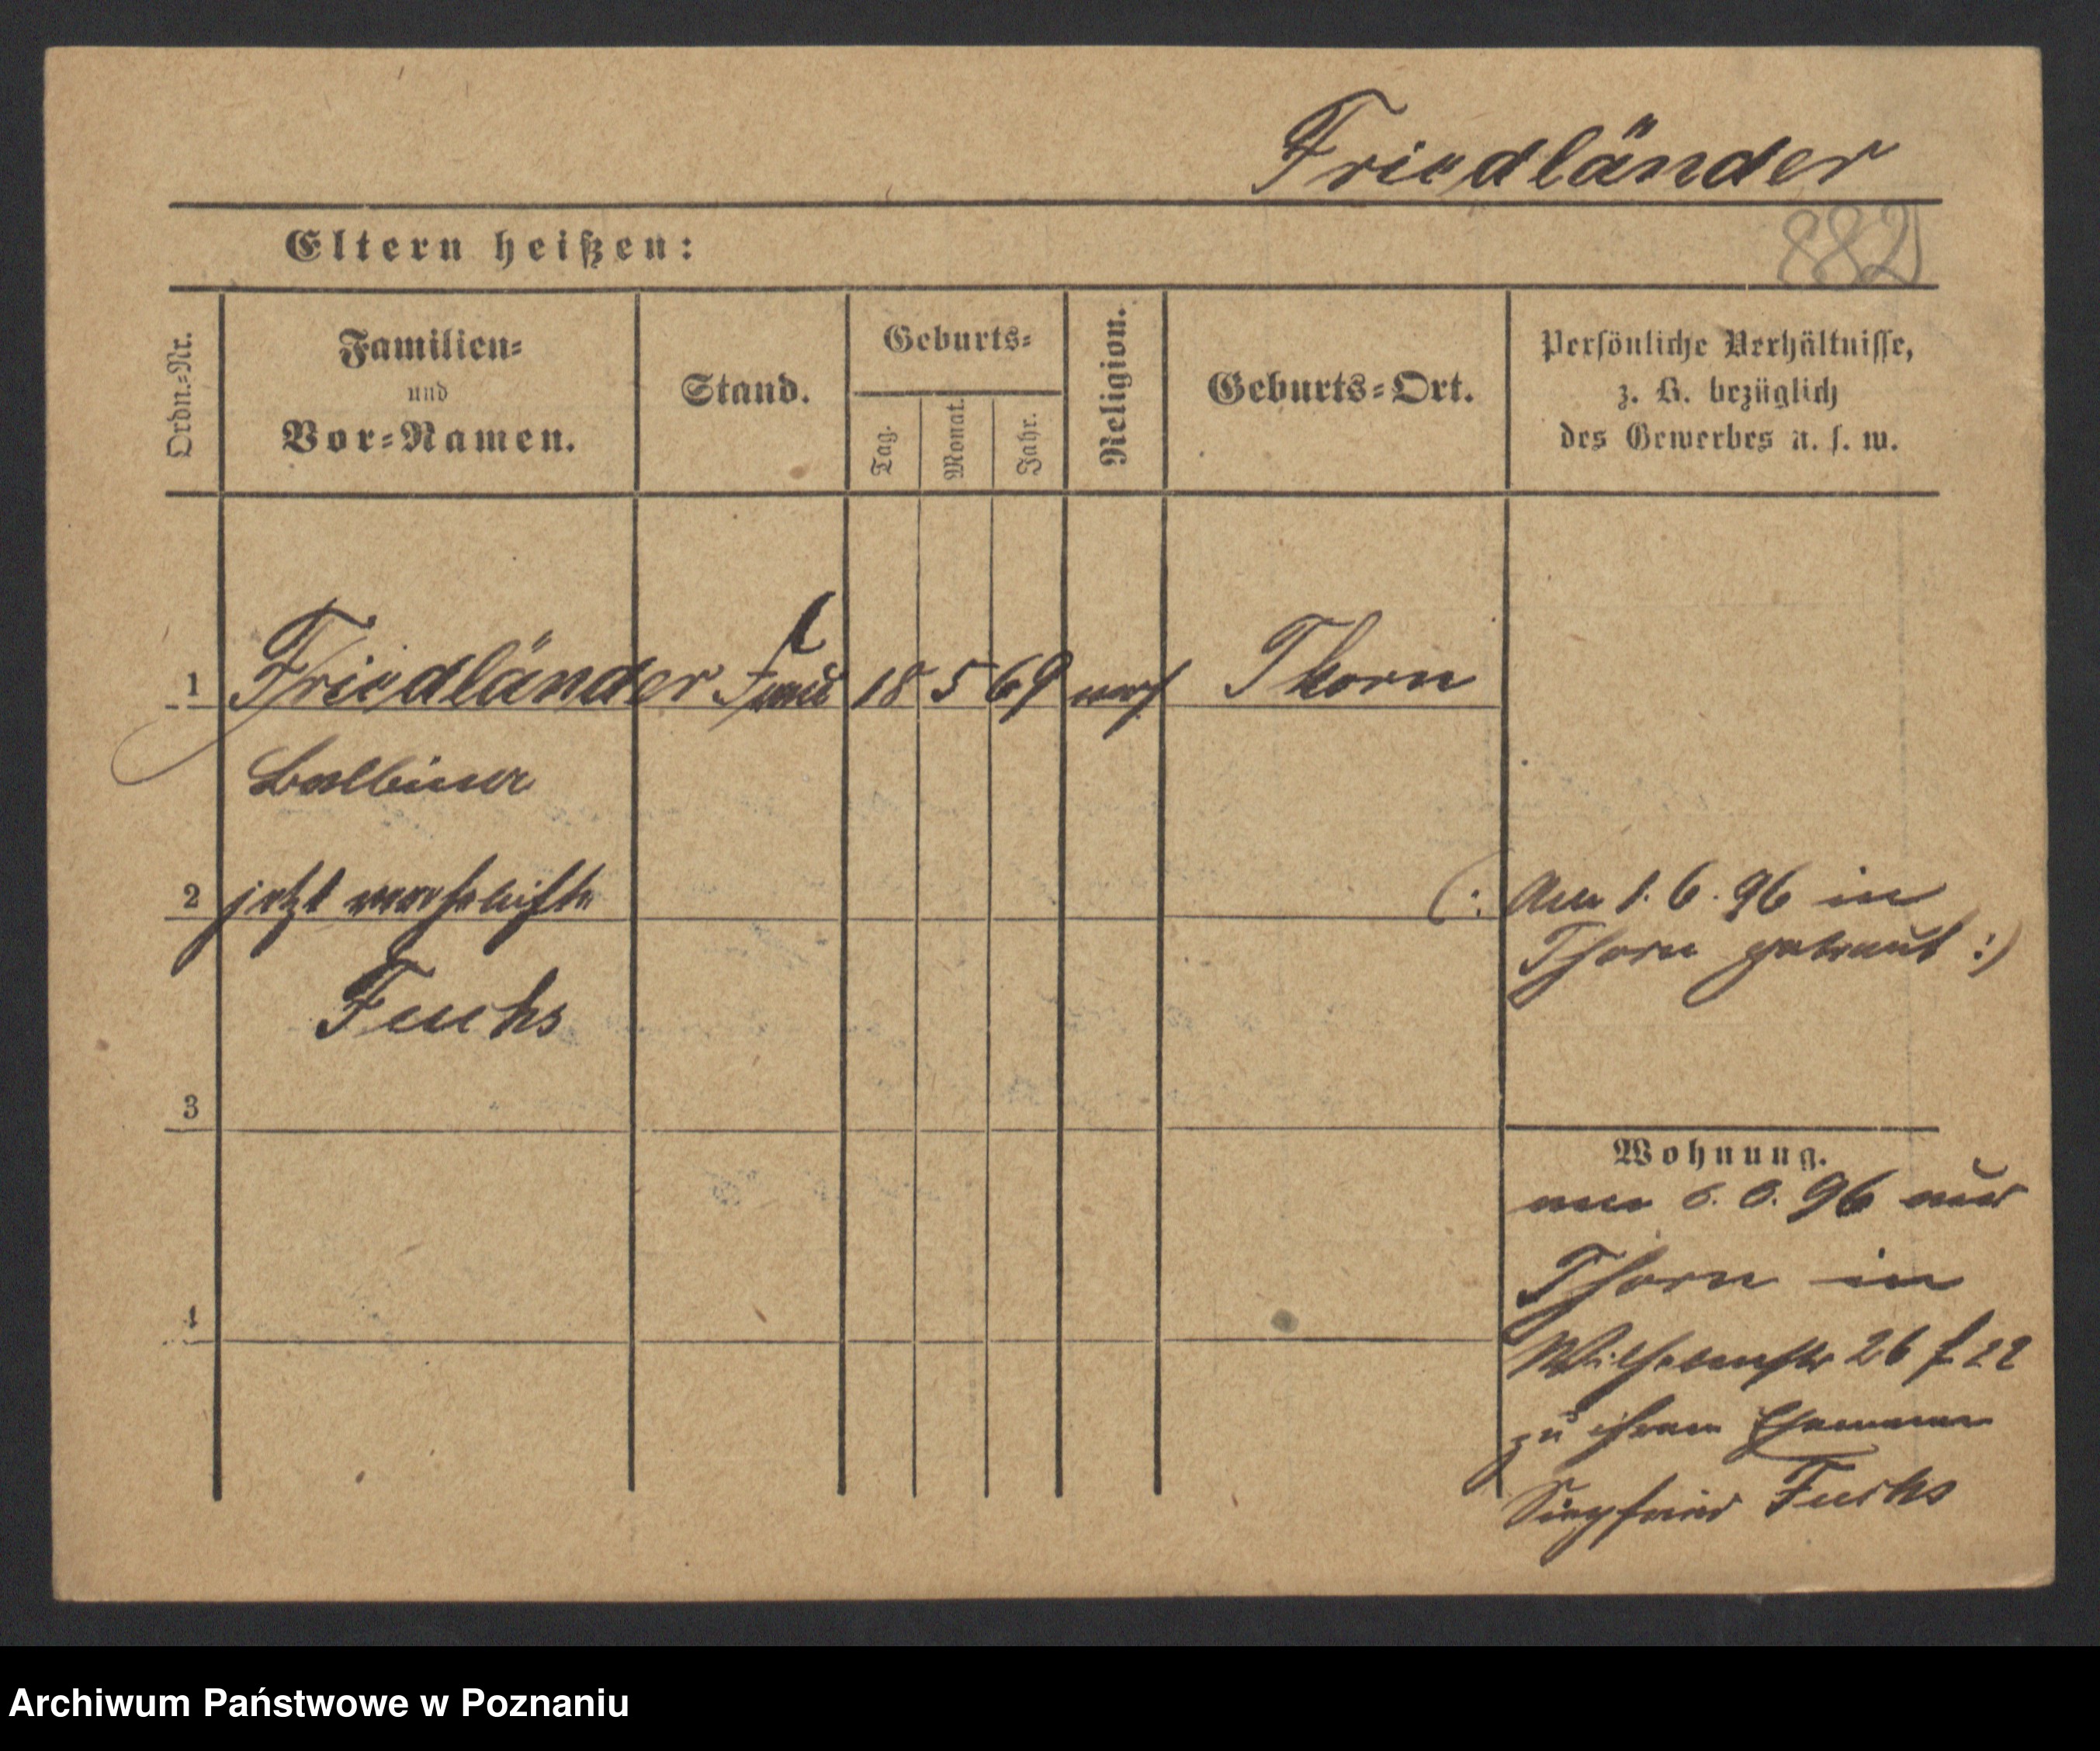 Friedländer
Eltern heißen:
882
Ordn.=Nr.
Familien=
und
Vor=Namen.
Stand.
Geburts=
Tag.
Monat.
Jahr.
Religion.
Geburts=Ort.
Persönliche Verhältnisse,
z. B. bezüglich
des Gewerbes u. s. w.
1 Friedländer 18 5 69 Thorn
Balbina
2 jetzt verehelichte
Fuchs
(: Am 1. 6. 96 in
Thorn getraut :)
3
Wohnung.
96 aus
Thorn in
4
Wilhelmstr 26
zu ihrem Ehemann
Siegfried Fuchs
Archiwum Państwowe w Poznaniu